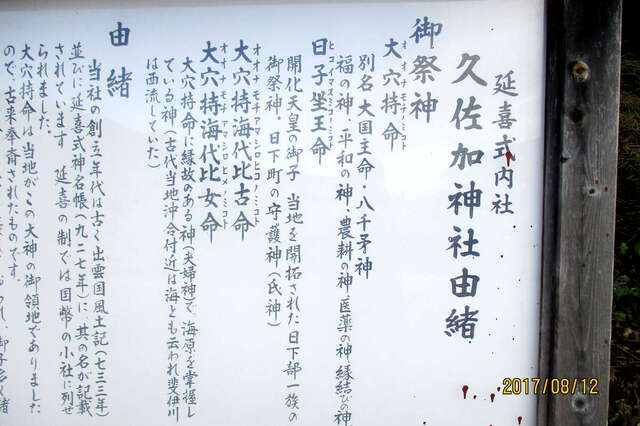 延喜式内社
久佐加神社由緒
御祭神
大穴持命
オオナモチノミコト
別名 大国主命・八千矛神
福の神・平和の神・農耕の神・医薬の神・縁結びの神
日子坐王命
ヒコイマスミコノミコト
開化天皇の御子 当地を開拓された日下部一族の
御祭神・日下町の守護神(氏神)
大穴持海代比古命
オオナモチアマシロヒコノミコト
大穴持海代比女命
オオナモチアマシロヒメノミコト
大穴持命に縁故のある神(夫婦神)で、海原を掌握し
ている神(古代当地沖合付近は海とも云われ斐伊川
は西流していた)
由緒
当社の創立年代は古く出雲国風土記(七三三年)
並びに延喜式神名帳(九二七年)に 其の名が記載
されています 延喜の制では国幣の小社に列せ
られました
大穴持命は当地がこの大神の御領地でありました
ので、古来奉斎されたものです。
2017/08/12